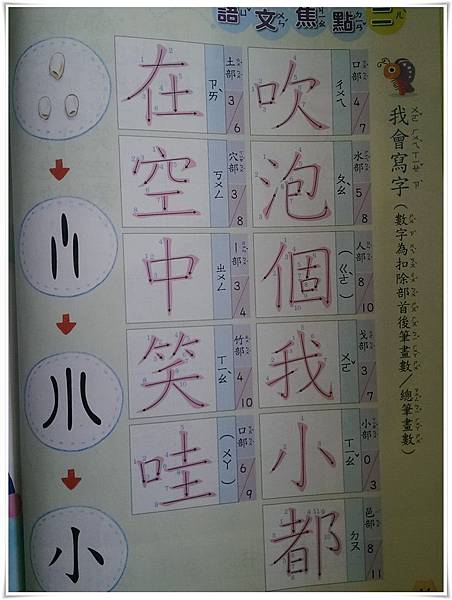 語文焦點二
我會寫字(數字為扣除部首後筆畫數/總筆畫數)
吹 ㄔㄨㄟ 口部 4/7
泡 ㄆㄠˋ 水部 5/8
個 (˙ㄍㄜ) 人部 8/10
我 ㄨㄛˇ 戈部 3/7
小 ㄒㄧㄠˇ 小部 0/3
都 ㄉㄡ 邑部 8/11
在 ㄗㄞˋ 土部 3/6
空 ㄎㄨㄥ 穴部 3/8
中 ㄓㄨㄥ 丨部 3/4
笑 ㄒㄧㄠˋ 竹部 4/10
哇 (ㄨㄚ) 口部 6/9
小